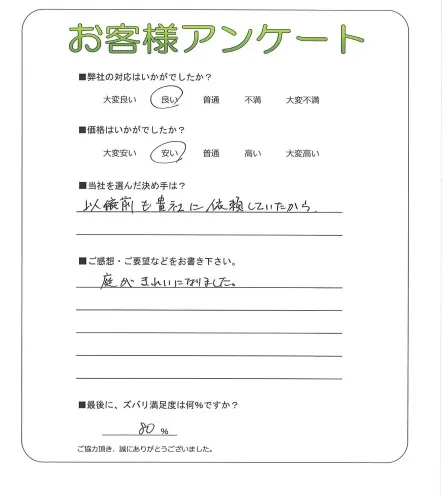 お客様アンケート
■弊社の対応はいかがでしたか？
大変良い 良い 普通 不満 大変不満
■価格はいかがでしたか？
大変安い 安い 普通 高い 大変高い
■当社を選んだ決め手は？
以前も貴社に依頼していたから
■ご感想・ご要望などをお書き下さい。
庭がきれいになりました。
■最後に、ズバリ満足度は何%ですか？
80 %
ご協力頂き、誠にありがとうございました。